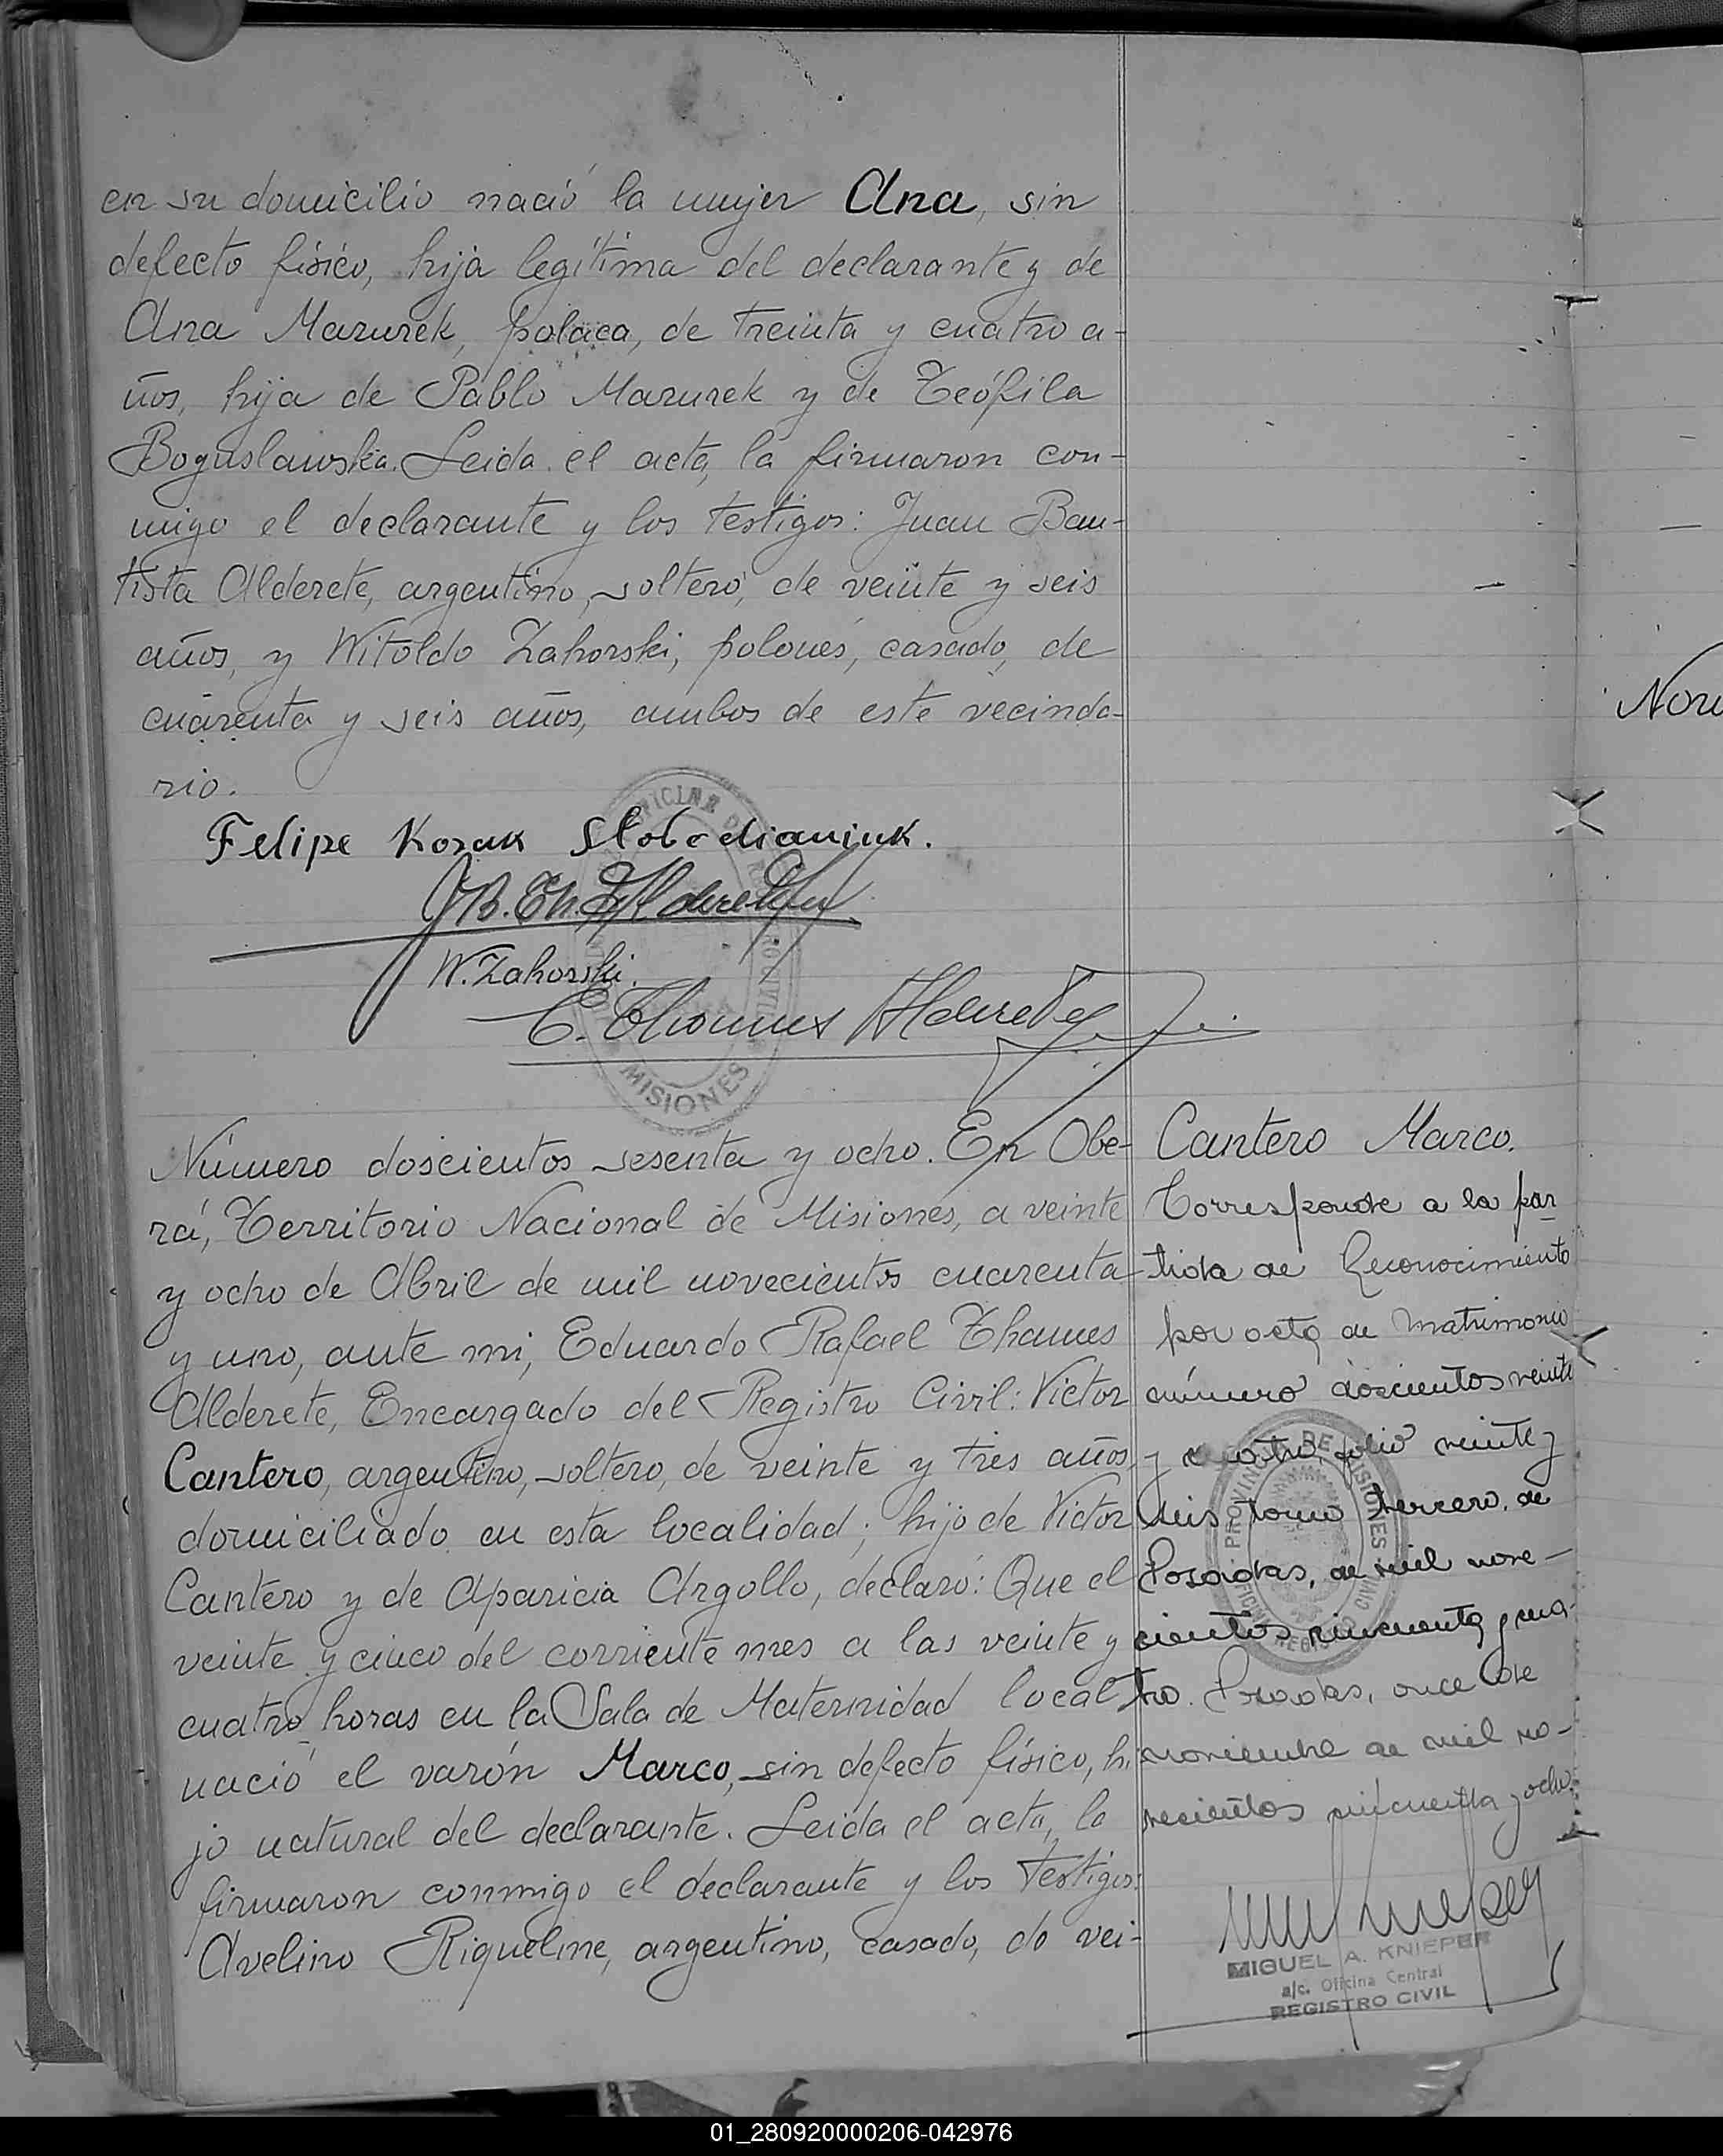 en su domicilio nació la mujer Ana, sin
defecto físico, hija legítima del declarante y de
Ana Mazurek, polaca, de treinta y cuatro a-
ños, hija de Pablo Mazurek y de Teófila
Boguslawska. Leida el acta, la firmaron con-
migo el declarante y los testigos: Juan Bau-
tista Alderete, argentino, soltero, de veinte y seis
años, y Witoldo Zahorski, polonés, casado, de
cuarenta y seis años, ambos de este vecinda-
rio.
Felipe Kozak Slobodianiuk.
W. Zahorski.
E. Thames Alderete
MISIONES
Número doscientos sesenta y ocho. En Obe-
rá, Territorio Nacional de Misiones, a veinte
y ocho de Abril de mil novecientos cuarenta
y uno, ante mi, Eduardo Rafael Thames
Alderete, Encargado del Registro Civil: Victor
Cantero, argentino, soltero, de veinte y tres años,
domiciliado en esta localidad; hijo de Victor
Cantero y de Aparicia Argollo, declaró: Que el
veinte y cinco del corriente mes a las veinte y
cuatro horas en la Sala de Maternidad local
nació el varón Marco, sin defecto físico, hi
jo natural del declarante. Leida el acta, la
firmaron conmigo el declarante y los testigos:
Avelino Riquelme, argentino, casado, de vei-
Cantero Marco.
Corresponde a la par
tida de Reconocimiento
por acta de matrimonio
número doscientos veinte
y cuatro, folio veinte y
seis, tomo tercero, de
Posadas, de mil nove-
cientos cincuenta y cua-
tro. Posadas, once de
noviembre de mil no-
vecientos cincuenta y ocho.
PROVINCIA DE MISIONES
MIGUEL A. KNIEPER
a/c. Oficina Central
REGISTRO CIVIL
01_280920000206-042976